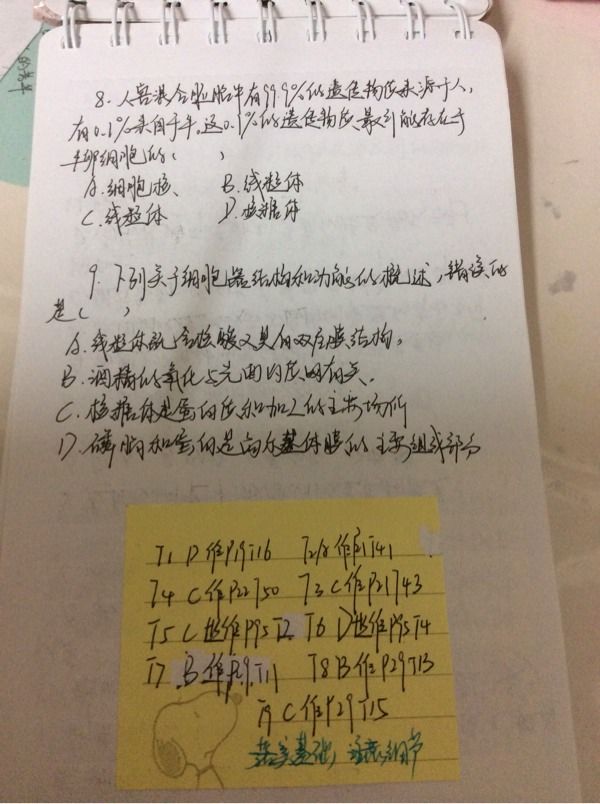 8. 人兽混合胚胎中有99.9%的遗传物质来源于人,
有0.1%来自于牛。这0.1%的遗传物质最可能存在于
牛卵细胞的( )
A. 细胞核、 B. 线粒体
C. 线粒体 D. 核糖体
9. 下列关于细胞器结构和功能的概述,错误的
是( )
A. 线粒体既含核酸又具有双层膜结构。
B. 酒精的氧化与光面内质网有关.
C. 核糖体是蛋白质和加工的主要场所
D. 磷脂和蛋白是高尔基体膜的主要组成部分
T1 D 作P19T16 T2 作P21T41
T4 C 作P22T50 T3 C作P21T43
T5 C 越作P95T2 T6 D越作P95T4
T7 B 作P29.T11 T8 B 作P29T13
T9 C作P29T15
落实基础,注意细节